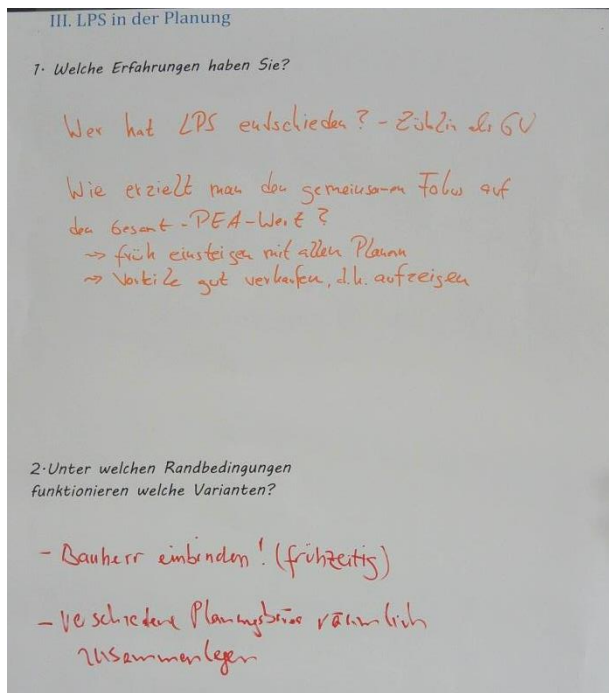 III. LPS in der Planung
1. Welche Erfahrungen haben Sie?
Wer hat LPS entschieden? - Züblin als GU
Wie erzielt man den gemeinsamen Fokus auf
den Gesamt-PEA-Wert?
→ früh einsteigen mit allen Planern
→ Vorteile gut verkaufen, d.h. aufzeigen
2. Unter welchen Randbedingungen
funktionieren welche Varianten?
- Bauherr einbinden! (frühzeitig)
- verschiedene Planungsbüros räumlich
zusammenlegen